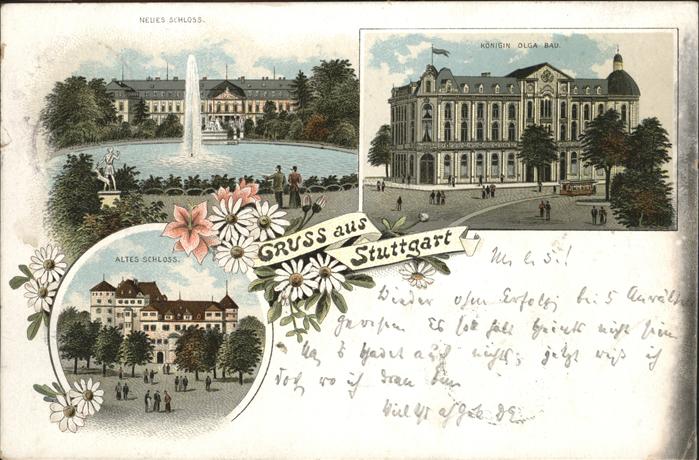 NEUES SCHLOSS.
KÖNIGIN OLGA BAU.
GRUSS aus
Stuttgart
ALTES SCHLOSS.
M. l. S.!
Wieder ohne Erfolg bei 5 Anwälten
gewesen. Es hat halt nicht sein
schadet auch nichts, jetzt weiß ich
doch, wo ich dran bin